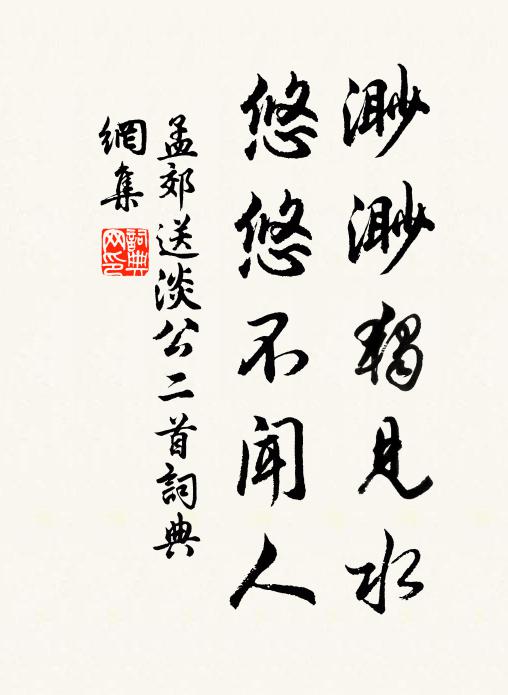 渺渺獨見水
悠悠不聞人
孟郊送淡公二首詞典
網集
詞典網印